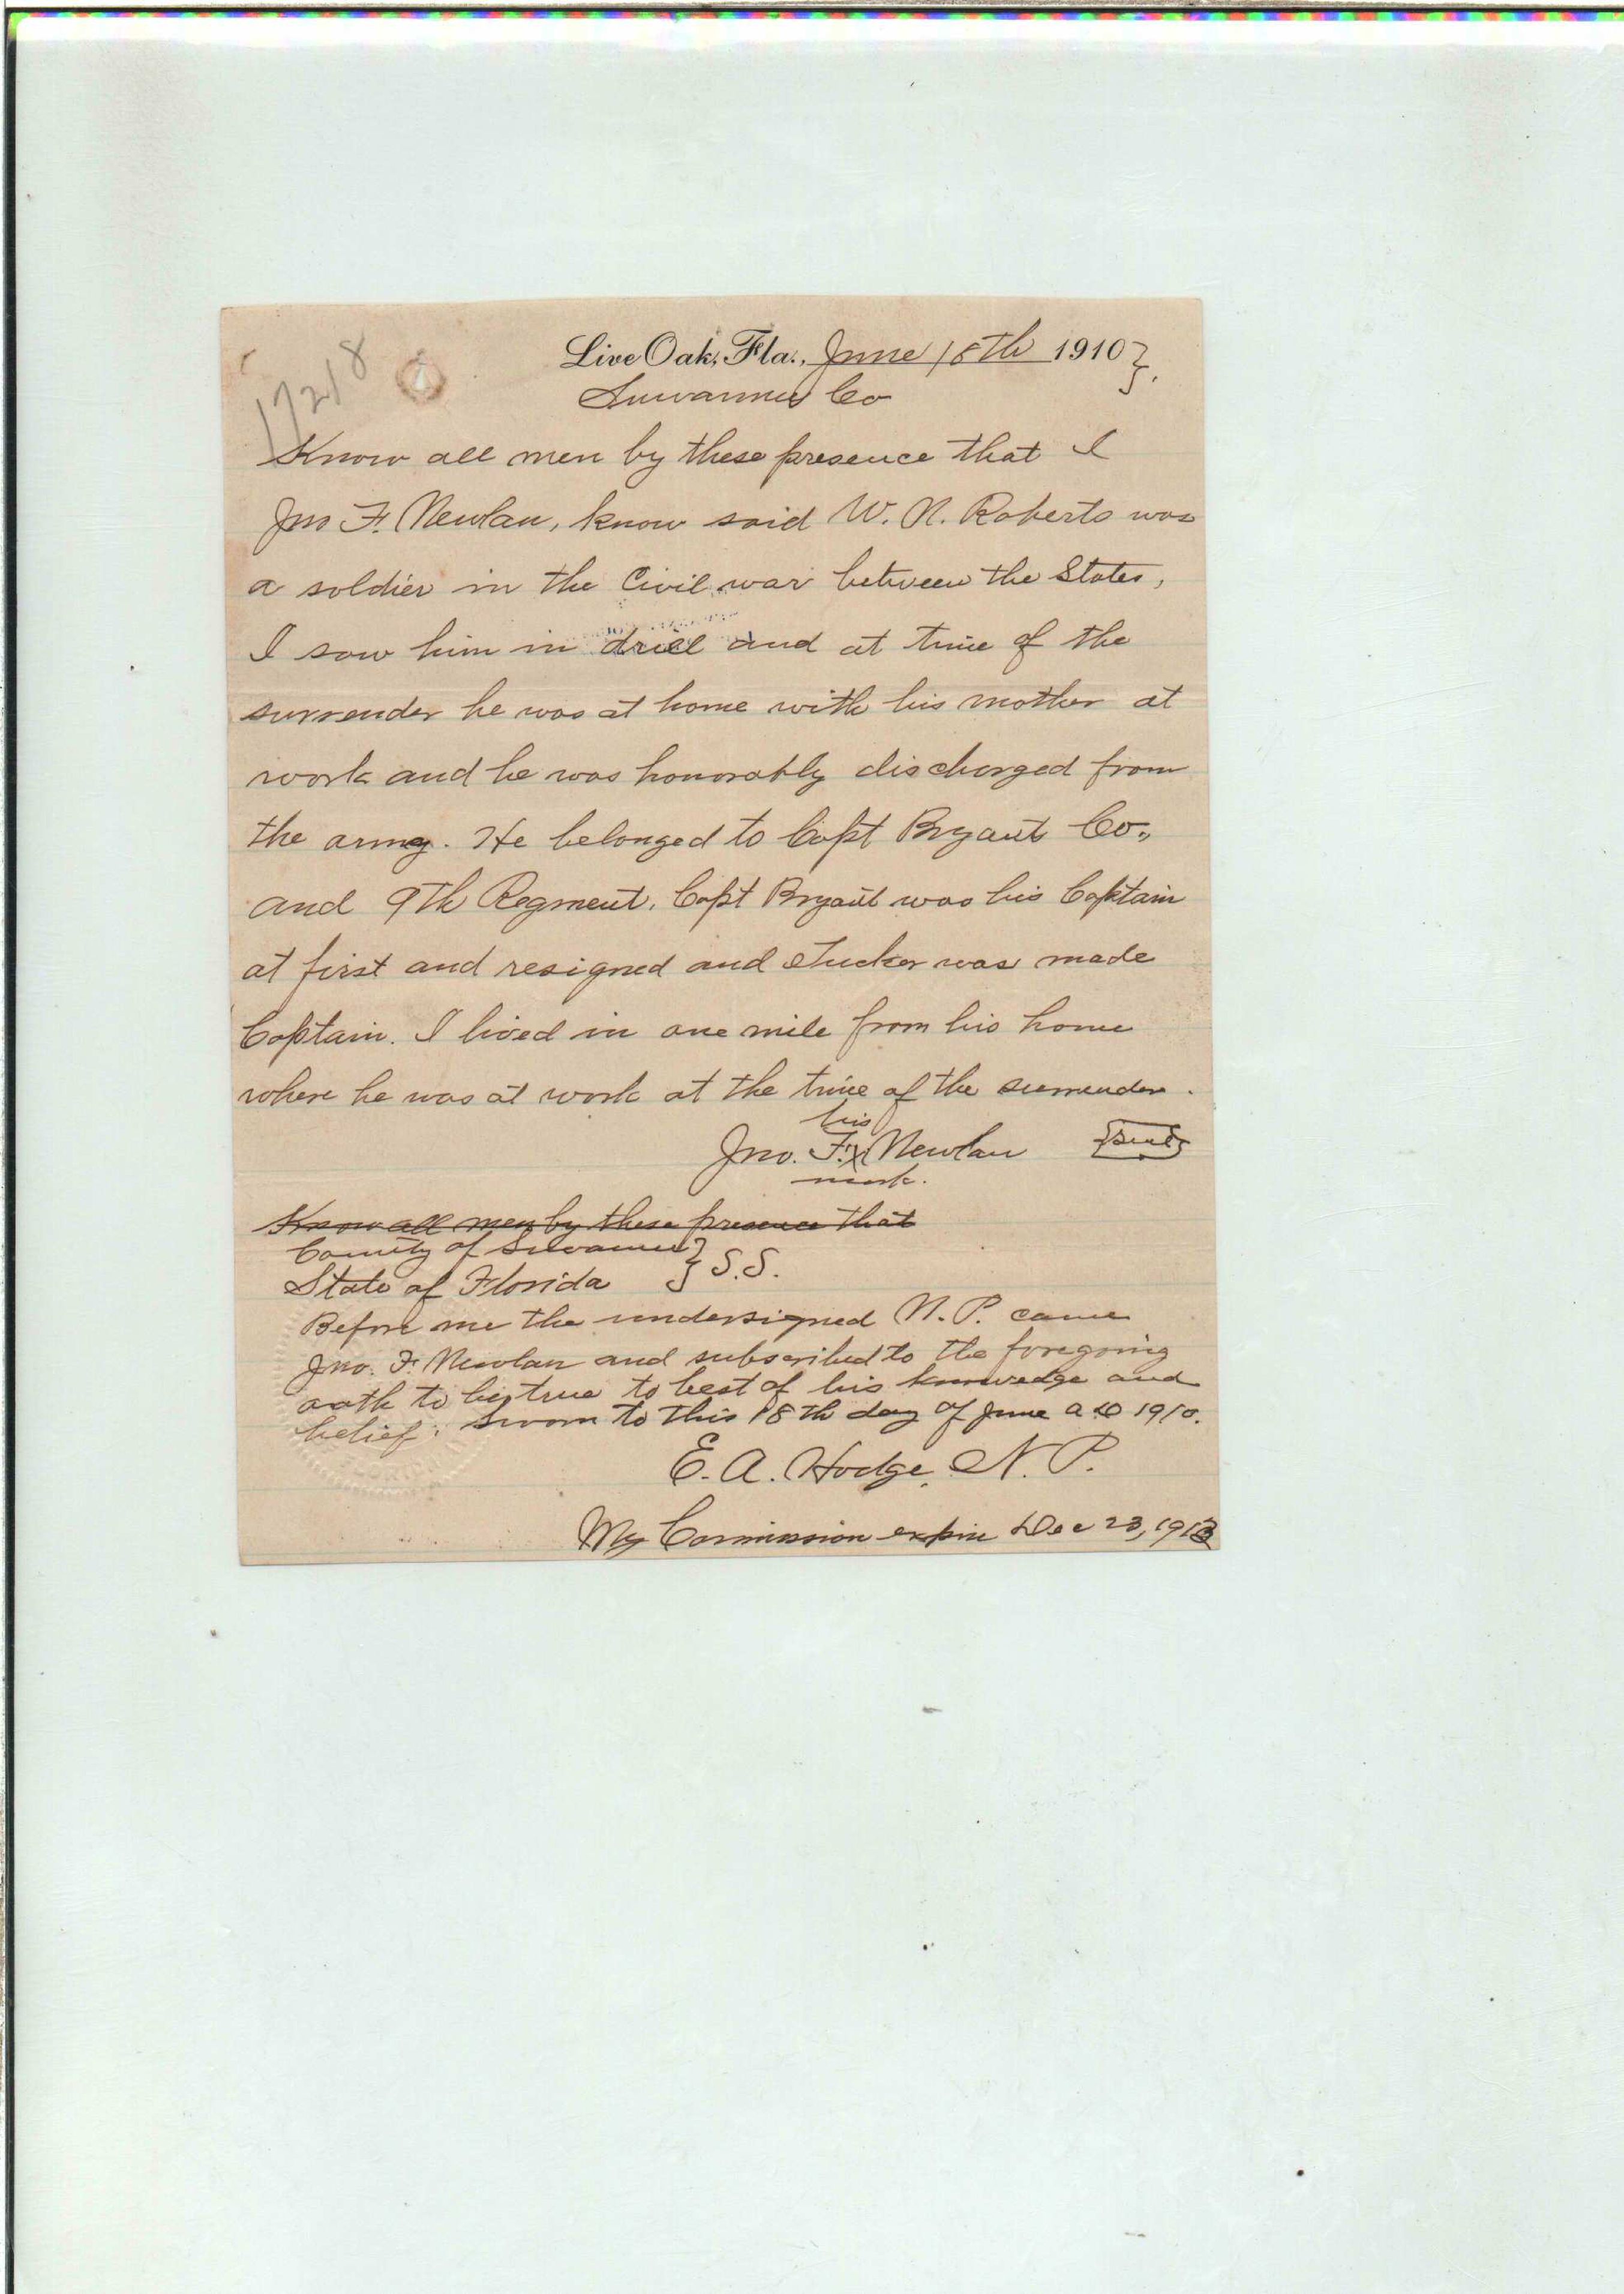 17218
Live Oak, Fla., June 18th 1910 }.
Suwannee Co
Know all men by these presence that I
Jno F. Newlan, know said W. N. Roberts was
a soldier in the Civil war between the States,
I saw him in drill and at time of the
surrender he was at home with his mother at
work and he was honorably discharged from
the army. He belonged to Capt Bryants Co.,
and 9th Regment, Capt Bryant was his Captain
at first and resigned and Tucker was made
Captain. I lived in one mile from his home
where he was at work at the time of the surrender.
his
Jno. F. X Newlan {Seal}
mark.
Know all men by these presence that
County of Suwannee }
State of Florida } S.S.
Before me the undersigned N. P. came
Jno. F. Newlan and subscribed to the foregoing
oath to be true to best of his knowedge and
belief. Sworn to this 18th day of June A D 1910.
E. A. Hodge, N. P.
My Commission expire Dec 23, 1913